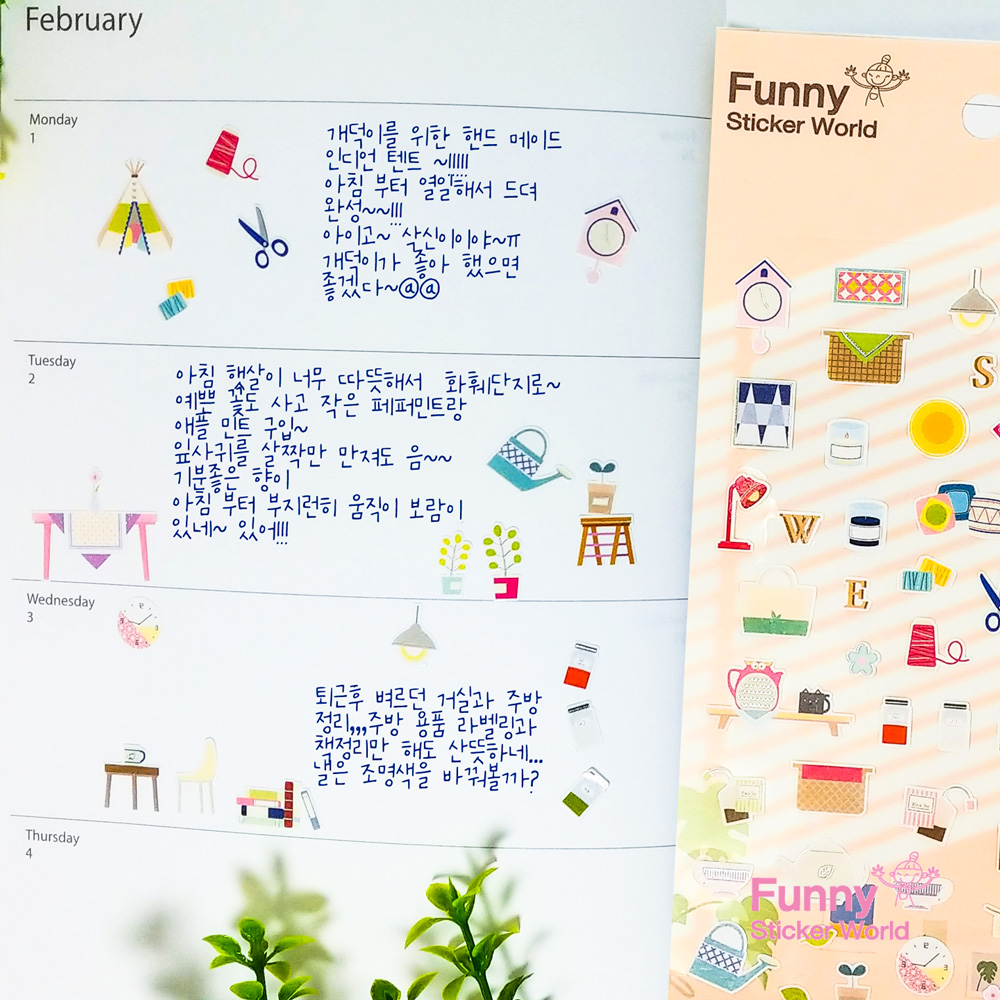 February
Monday
1
개덕이를 위한 핸드 메이드
인디언 텐트 ~!!!!!
아침 부터 열일해서 드뎌
완성~~!!!
아이고~ 삭신이이야~ㅠ
개덕이가 좋아 했으면
좋겠다~@@
Tuesday
2
아침 햇살이 너무 따뜻해서 화훼단지로~
예쁜 꽃도 사고 작은 페퍼민트랑
애플 민트 구입~
잎사귀를 살짝만 만져도 음~~
기분좋은 향이
아침 부터 부지런히 움직이 보람이
있네~ 있어!!!
Wednesday
3
퇴근후 벼르던 거실과 주방
정리,,,주방 용품 라벨링과
책정리만 해도 산뜻하네...
낼은 조명색을 바꿔볼까?
Thursday
4
Funny
Sticker World
S
W
E
Funny
Sticker World